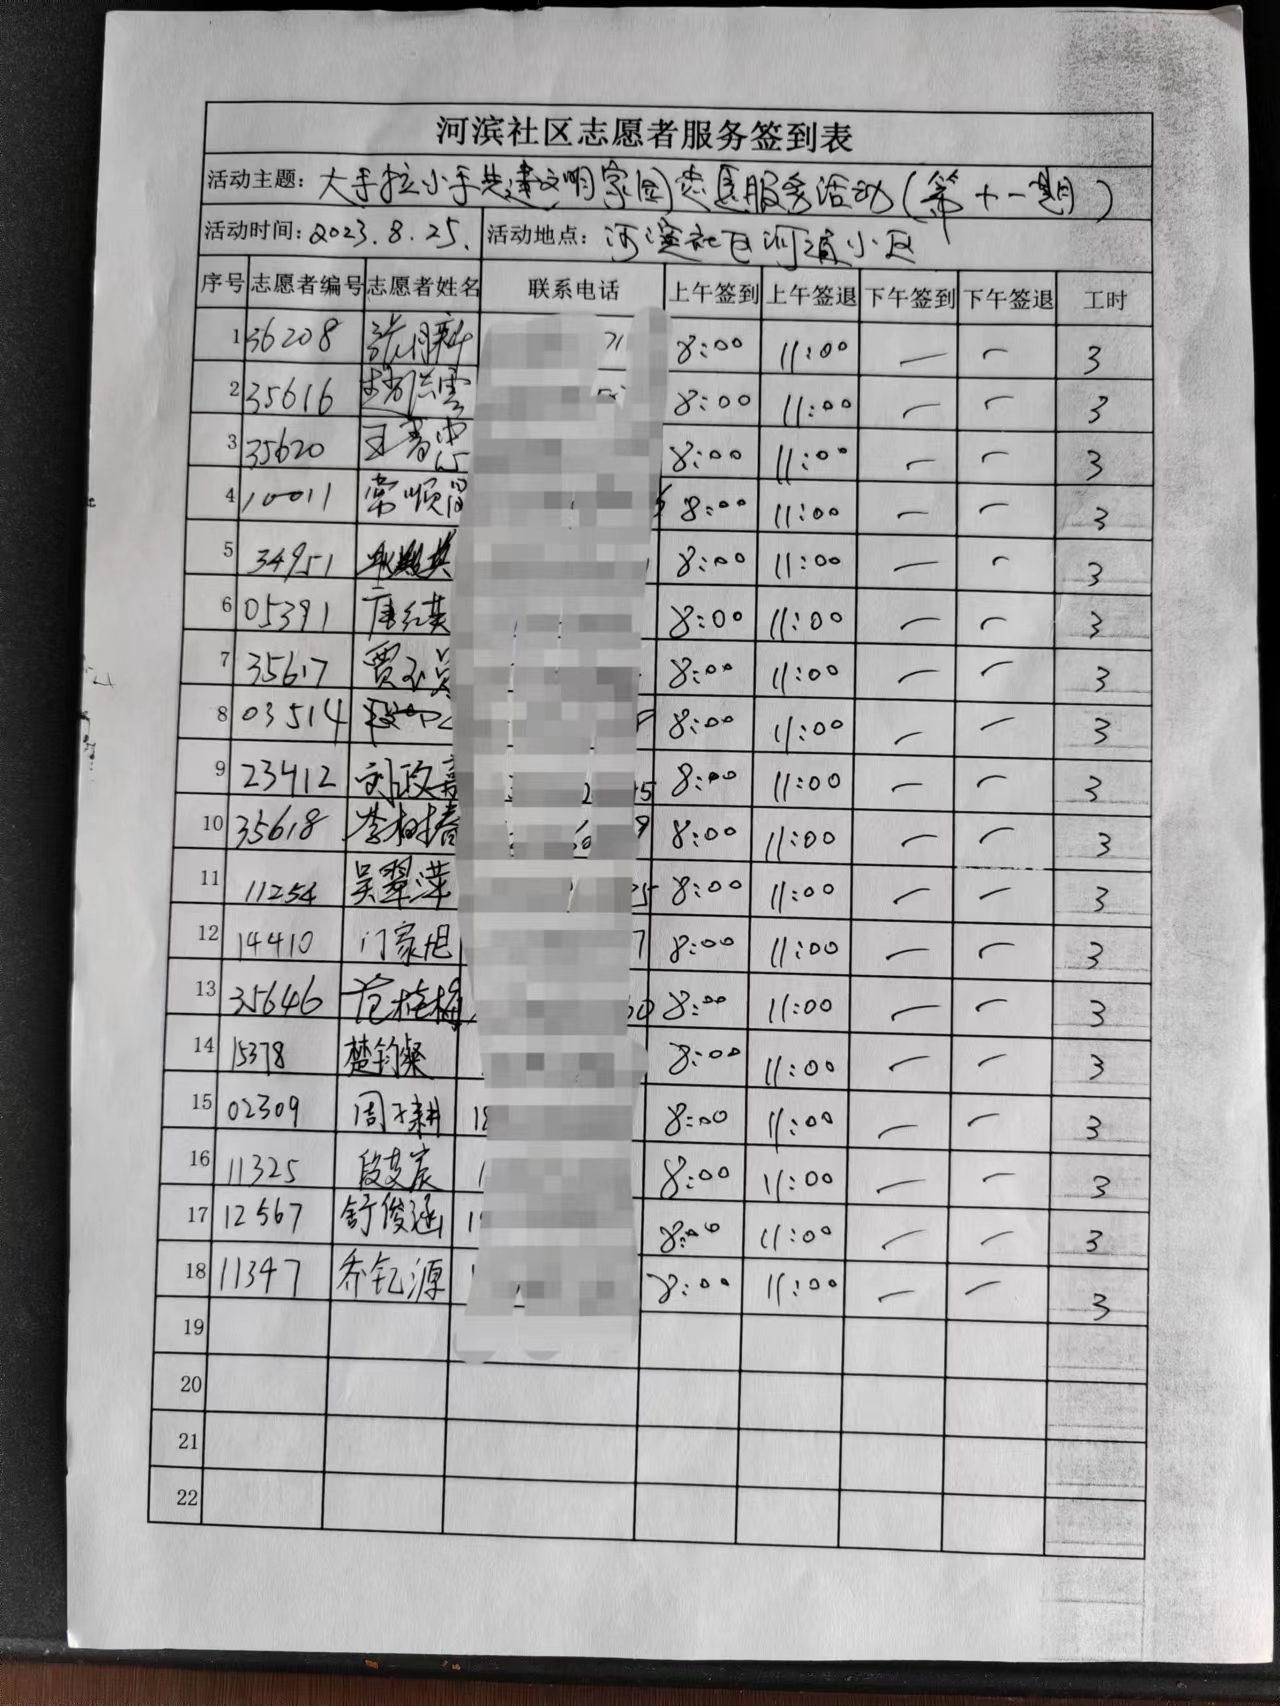 河滨社区志愿者服务签到表
活动主题: 大手拉小手共建文明家园志愿服务活动(第十一期)
活动时间: 2023.8.25. 活动地点: 河滨社区河滨小区
序号 志愿者编号 志愿者姓名 联系电话 上午签到 上午签退 下午签到 下午签退 工时
1 36208 71 8:00 11:00 — — 3
2 35616 8:00 11:00 — — 3
3 35620 8:00 11:00 — — 3
4 10011 常顺 8:00 11:00 — — 3
5 34951 8:00 11:00 — — 3
6 05391 唐红英 8:00 11:00 — — 3
7 35617 贾玉 8:00 11:00 — — 3
8 03514 8:00 11:00 — — 3
9 23412 刘政 5 8:00 11:00 — — 3
10 35618 李树春 9 8:00 11:00 — — 3
11 11254 吴翠萍 35 8:00 11:00 — — 3
12 14410 门家旭 7 8:00 11:00 — — 3
13 35646 范桂梅 8:00 11:00 — — 3
14 15378 楚钧粲 8:00 11:00 — — 3
15 02309 周子耕 8:00 11:00 — — 3
16 11325 段艾宸 1 8:00 11:00 — — 3
17 12567 舒俊涵 8:00 11:00 — — 3
18 11347 乔钇源 8:00 11:00 — — 3
19
20
21
22